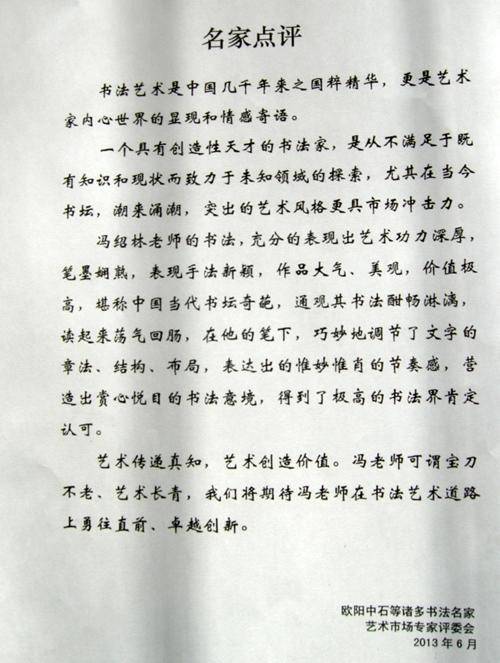 名家点评
书法艺术是中国几千年来之国粹精华，更是艺术
家内心世界的显现和情感寄语。
一个具有创造性天才的书法家，是从不满足于既
有知识和现状而致力于未知领域的探索，尤其在当今
书坛，潮来涌潮，突出的艺术风格更具市场冲击力。
冯绍林老师的书法，充分的表现出艺术功力深厚，
笔墨娴熟，表现手法新颖，作品大气、美观，价值极
高，堪称中国当代书坛奇葩，通观其书法酣畅淋漓，
读起来荡气回肠，在他的笔下，巧妙地调节了文字的
章法、结构、布局，表达出的惟妙惟肖的节奏感，营
造出赏心悦目的书法意境，得到了极高的书法界肯定
认可。
艺术传递真知，艺术创造价值。冯老师可谓宝刀
不老、艺术长青，我们将期待冯老师在书法艺术道路
上勇往直前、卓越创新。
欧阳中石等诸多书法名家
艺术市场专家评委会
2013年6月